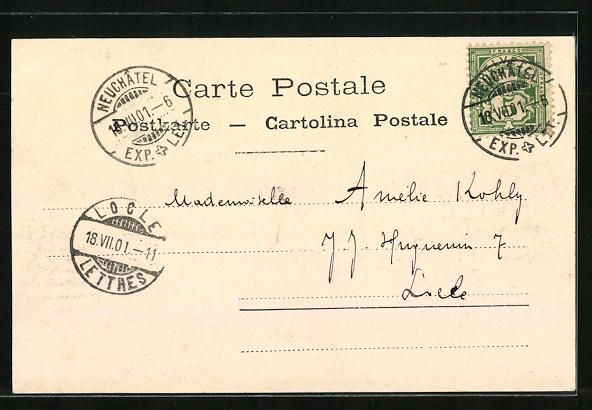 Carte Postale
Postkarte — Cartolina Postale
NEUCHÂTEL
18.VII.01.–6
EXP. LET.
FRANCO
NEUCHÂTEL
18.VII.01.–6
EXP. LET.
LOCLE
18.VII.01.–11
LETTRES
Mademoiselle Amélie Kohly
JJ Huguenin 7
Locle